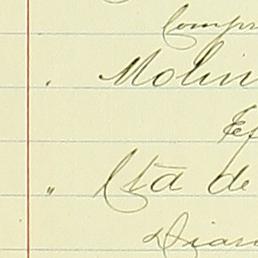 Compr
. Molin
Ef
" Cta de
Diari